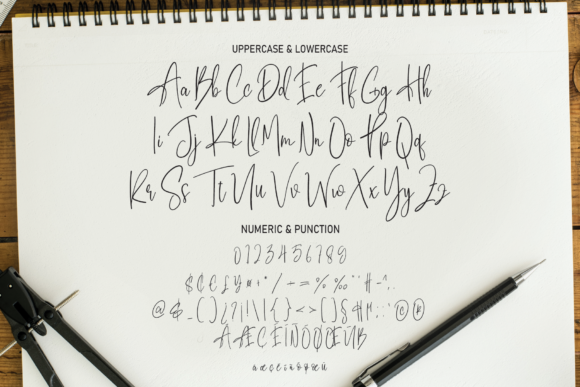 UPPERCASE & LOWERCASE
Aa Bb Cc Dd Ee Ff Gg Hh
Ii Jj Kk Ll Mm Nn Oo Pp Qq
Rr Ss Tt Uu Vv Ww Xx Yy Zz
NUMERIC & PUNCTION
0123456789
$ ¢ € £ ¥ ¤ + * / ÷ = % ‰ " # - ^ , .
@ & _ ( ) ¿ ? ¡ ! \ | { } < > [ ] § © ®